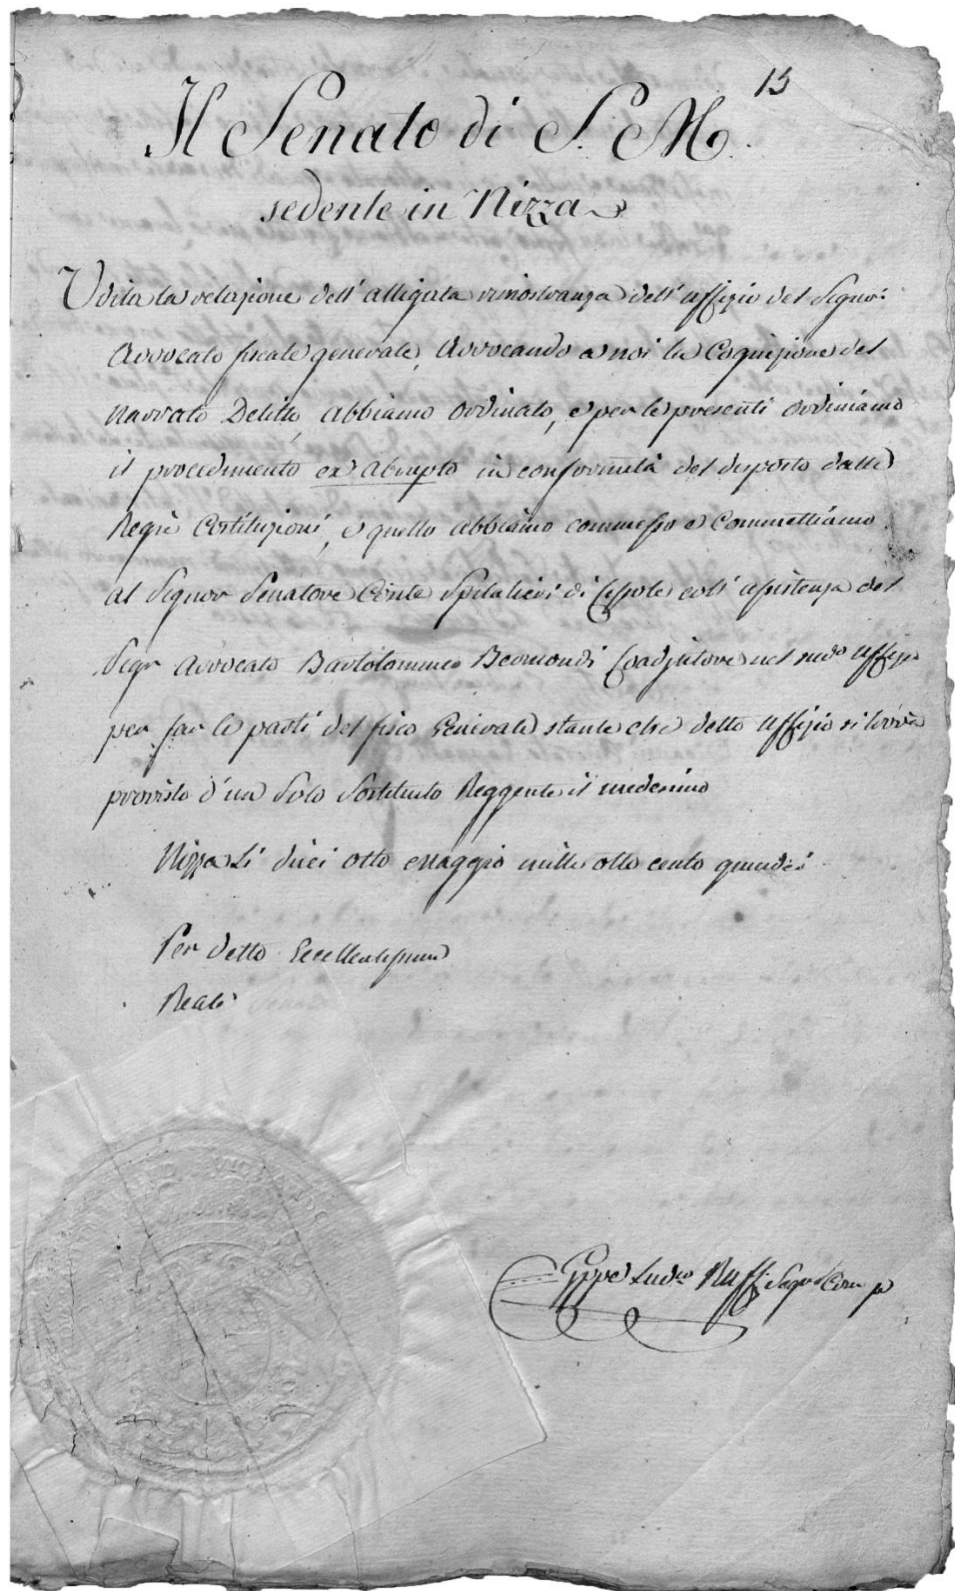 15
Il Senato di S. M.
sedente in Nizza
Udita la relazione dell' alligata rimostranza dell' uffizio del Signor
Avvocato fiscale generale, Avvocando a noi la Cognizione del
narrato Delitto, abbiamo ordinato, e per le presenti ordiniamo
il procedimento ex abrupto in conformità del disposto dalle
Regie Costituzioni, e quello abbiamo commesso e Commettiamo
al Signor Senatore Conte Spitalieri di Cessole coll' assistenza del
Sigr Avvocato Bartolommeo Bermondi Coadjutore nel sudo uffizio
per far le parti del fisco Generale stante che detto uffizio si trova
provisto d'un Solo Sostituto Reggente il medesimo
Nizza Li dieci otto Maggio mille otto cento quindici
Per detto Eccellentissimo
Reale
Gppe Ludco Raffi Segro